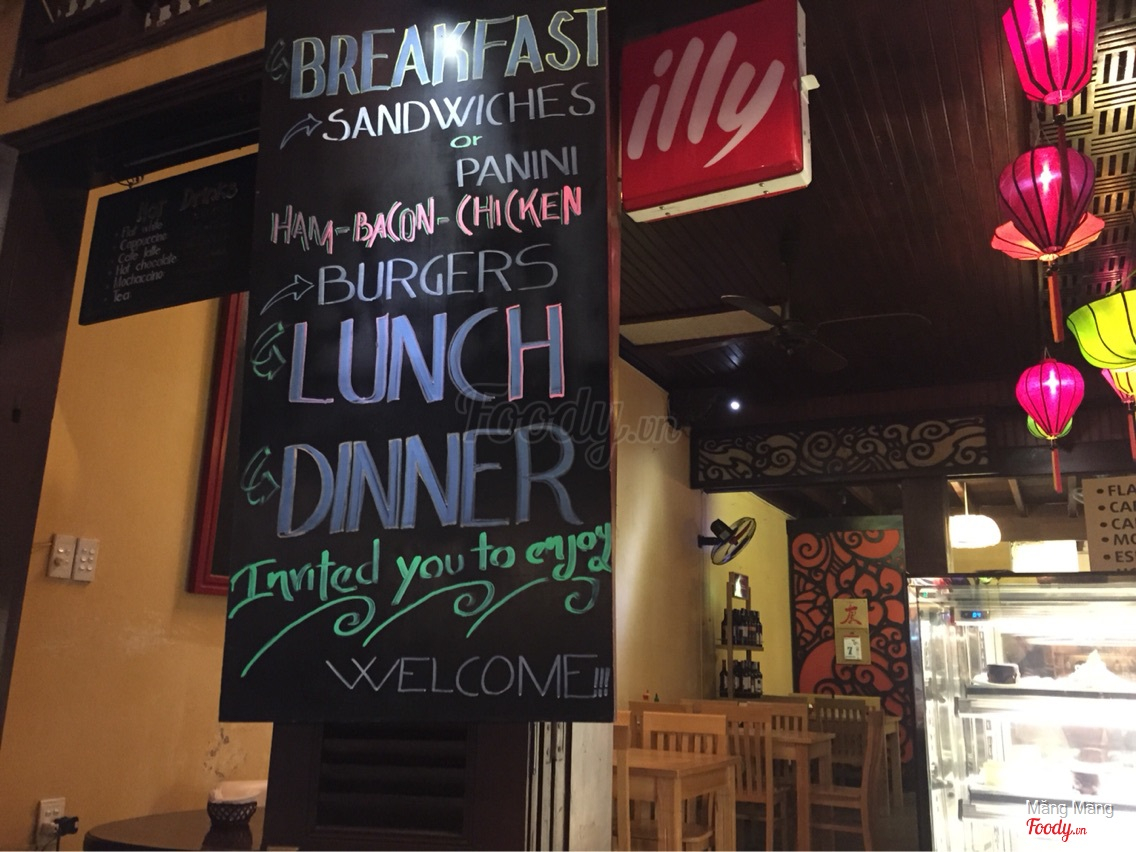 BREAKFAST
SANDWICHES
or
PANINI
HAM-BACON-CHICKEN
BURGERS
LUNCH
DINNER
Invited you to enjoy
WELCOME!!!
illy
Hot Drinks
- Flat white
- Cappuccino
- Cafe latte
- Hot chocolate
- Mochaccino
- Tea
Foody.vn
• FLA
• CAP
• CA
• MO
• ES
7
Măng Măng
Foody.vn